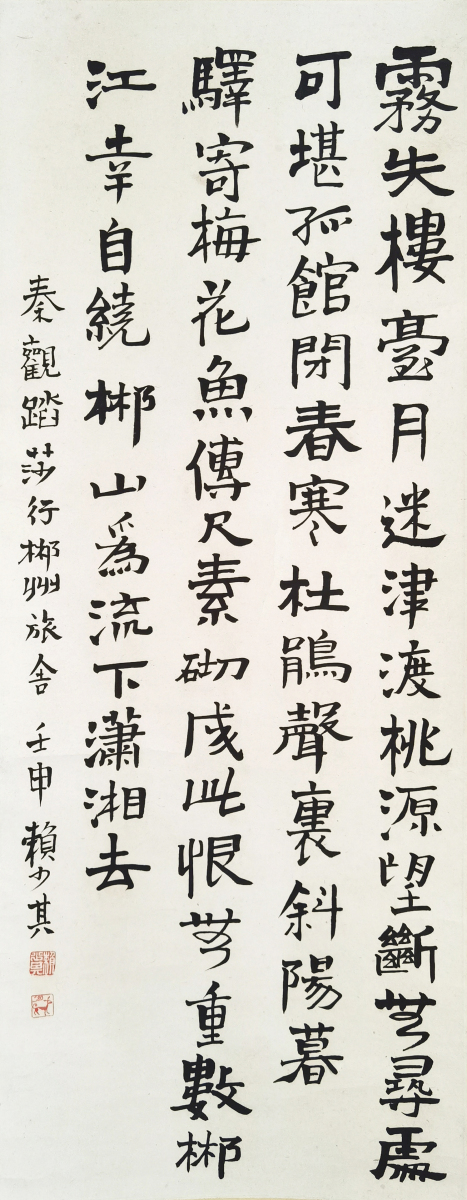 霧失樓臺月迷津渡桃源望斷無尋處
可堪孤館閉春寒杜鵑聲裏斜陽暮
驛寄梅花魚傳尺素砌成此恨無重數郴
江幸自繞郴山爲流下瀟湘去
秦觀踏莎行郴州旅舍 壬申 賴少其